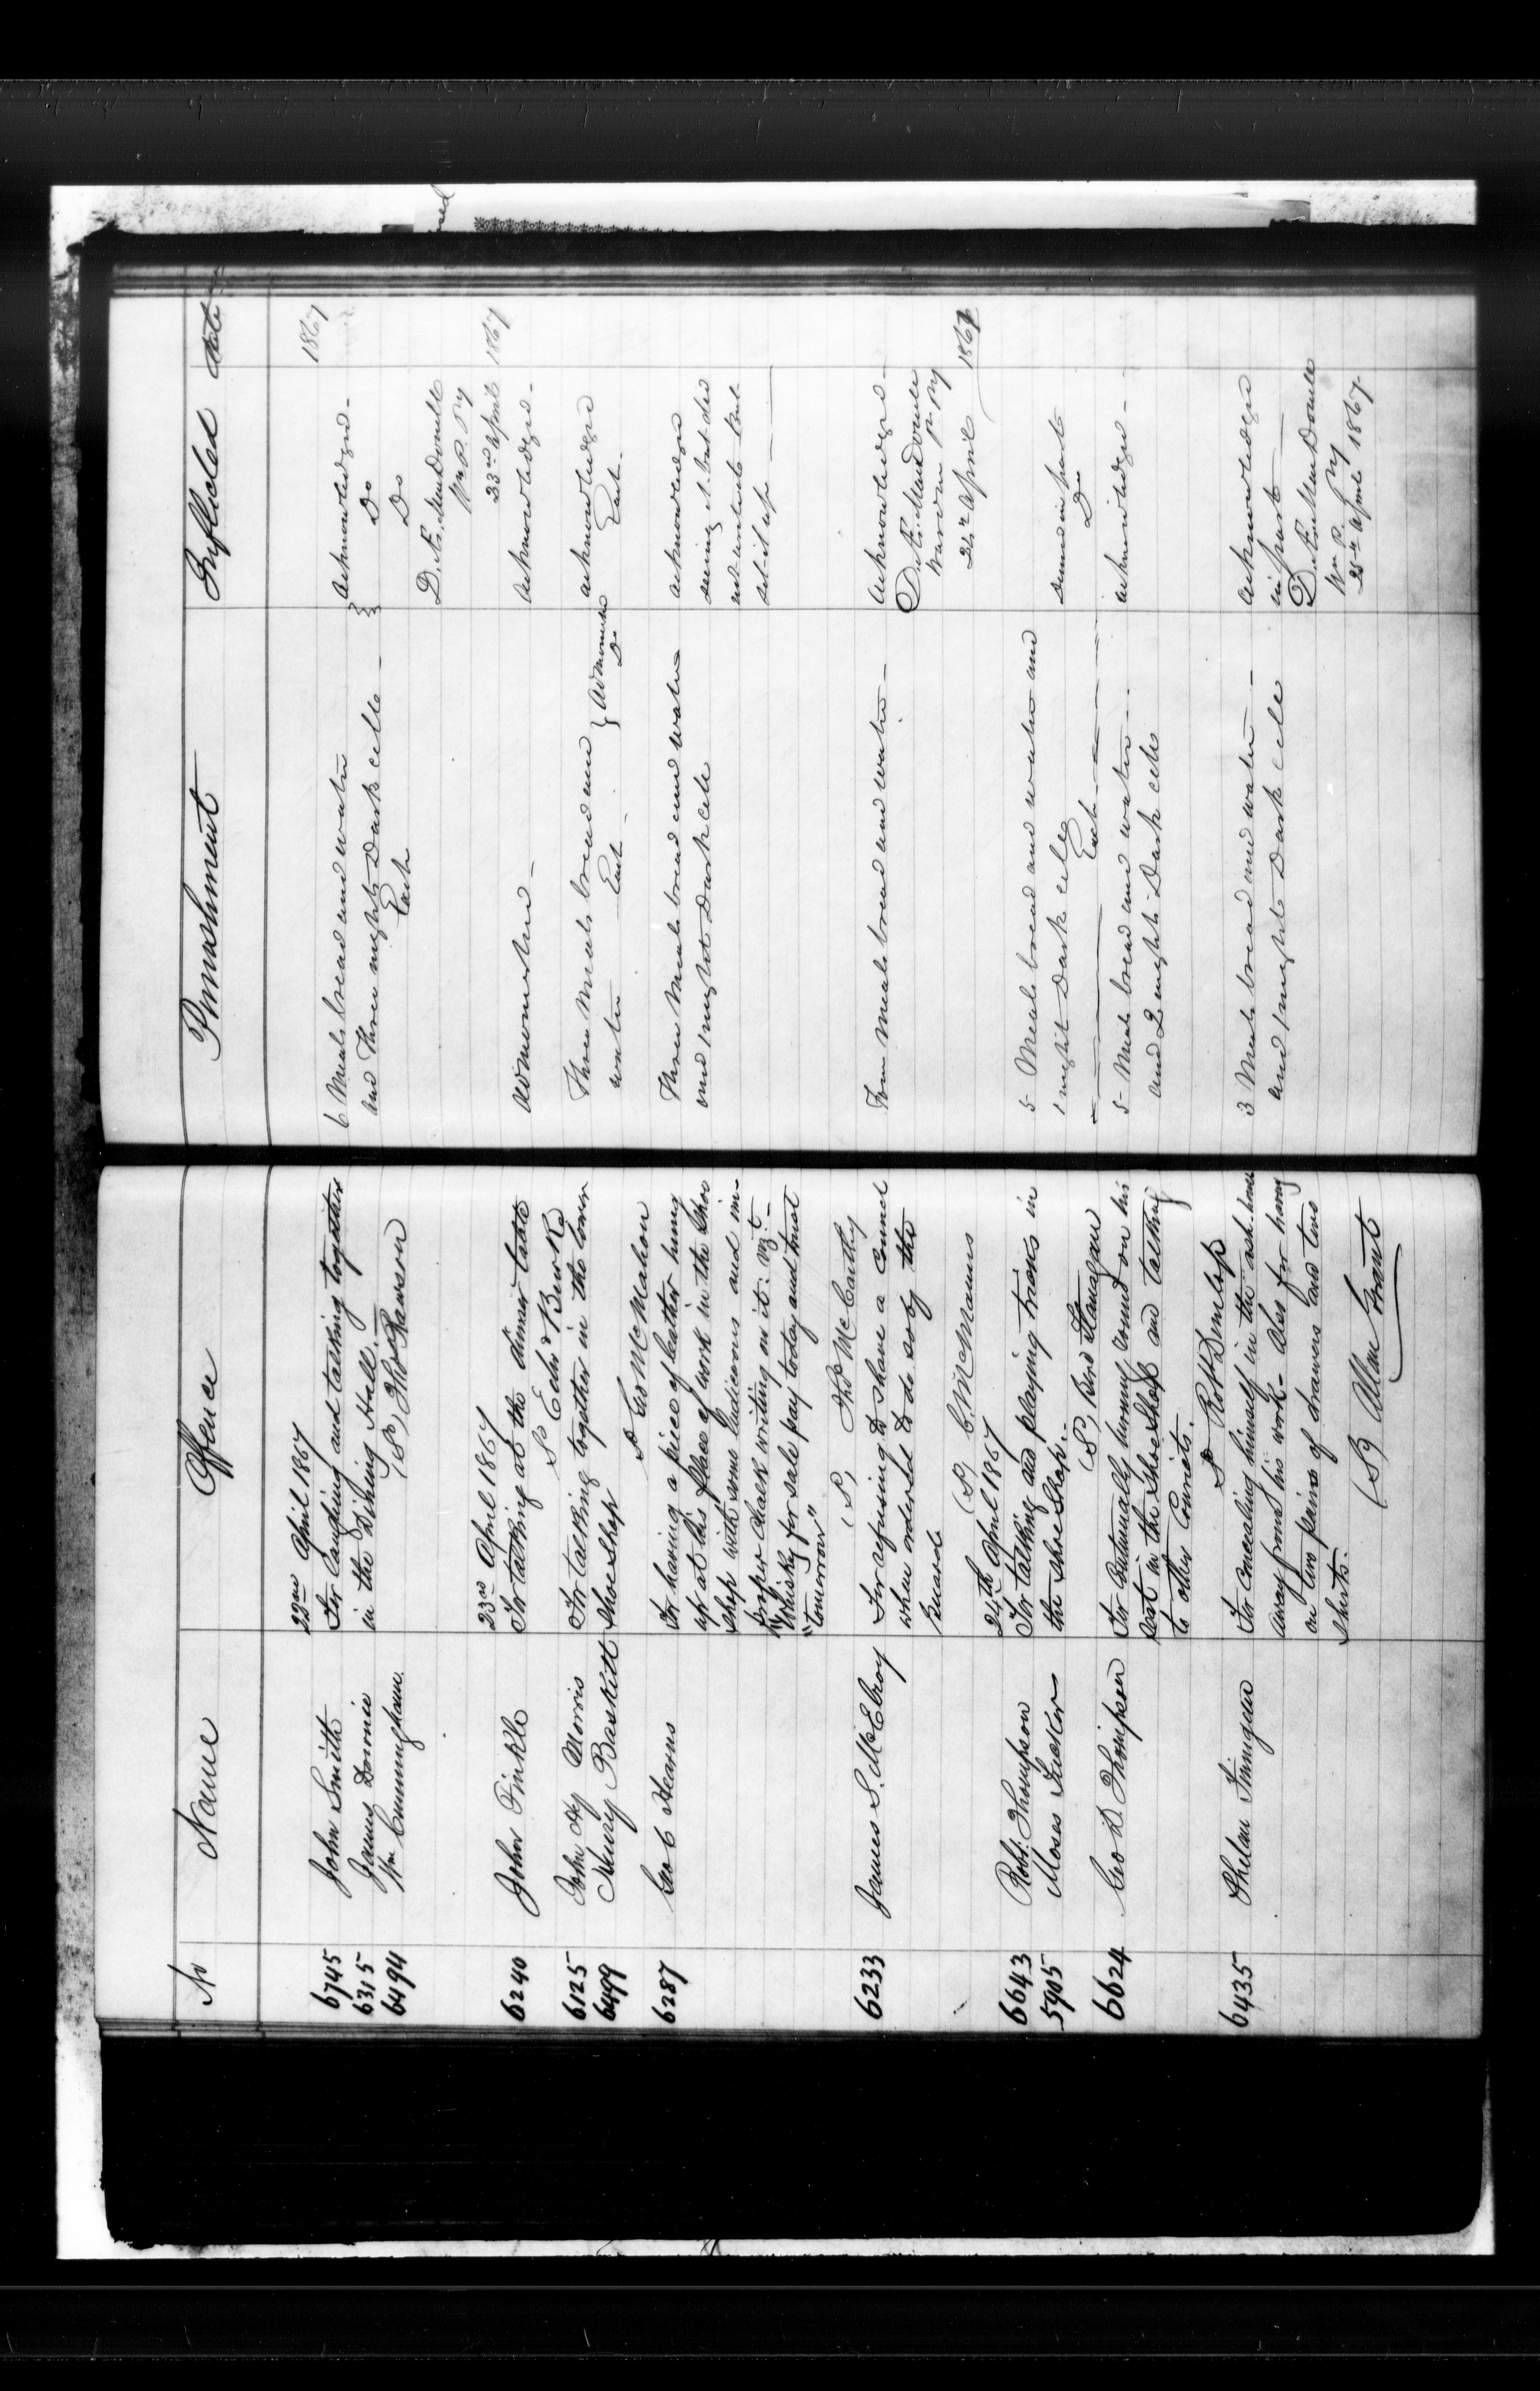 No Name Offence Punishment Inflicted Date
22nd April 1867 1867
6745 John Smith For laughing and talking together 6 Meals bread and water Acknowledged -
6315 James Downie in the Dining Hall. and Three nights Dark cells - Do
6494 Wm Cunningham (S) Thos Rawson Each Do
D. Æ. MacDonell
Wn P. Py
23rd April 1867 23rd April 1867
6240 John Tinkle For talking at the dinner table admonished - Acknowledged -
S Edw Burke
6125 John Hy Morris For talking together in the lower Three Meals bread and } Admonished acknowledged
6499 Henry Baskett Shoe Shop water Each - Do Each -
S Geo McMahon
6287 Geo C Hearns For having a piece of leather hung Three Meals bread and water acknowledges
up at his place of work in the Shoe and 1 night Dark cell seeing it but did
Shop with some ludicrous and im-
proper chalk writing on it: vizt - set it up
"Whisky for sale pay today and trust
"tomorrow"
(S) Thos McCarthy
6233 James S. McElroy For refusing to shave a Convict Four Meals bread and water - Acknowledged -
when ordered to do so by the D. Æ. MacDonell
Guard Warden P. Py
(S) C. McManus 24th April 1867
24th April 1867
6643 Robt. Thompson For talking and playing tricks in 5 Meals bread and water and
5905 Moses Tucker the Shoe Shop. 1 night Dark cells denied in part
(S) Bird Flanagan Each Do
6624 Geo D. Thompson For Continually turning round on his 5 Meals bread and water - acknowledged -
seat in the Shoe Shop and talking and 2 nights Dark cells
to other Convicts.
S Robt Dunlop
6435 Phelan Finnigan For Concealing himself in the ash house 3 Meals bread and water - Acknowledges
away from his work - Also for having and 1 night Dark cell in part
on two pairs of drawers and two D. Æ. MacDonell
shirts. Wn P. Py
(S) Allan Grant 25th April 1867